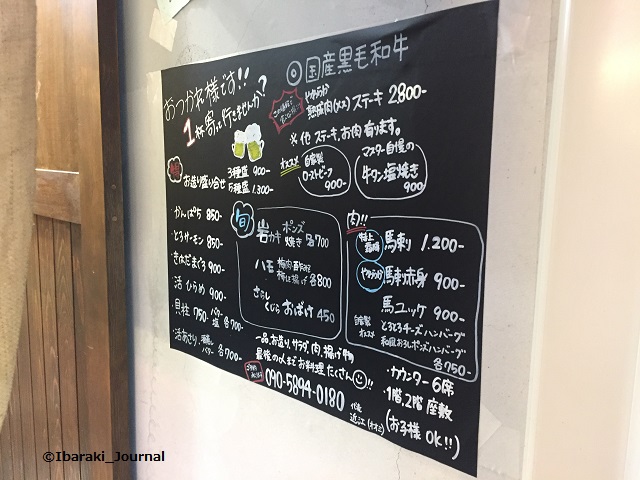 おつかれ様です!!
1杯寄って行きませんか?
◎国産黒毛和牛
やわらか
熟成肉(メス)ステーキ 2800-
※他 ステーキ、お肉 有ります。
オススメ
自家製
ローストビーフ
900-
マスター自慢の
牛タン塩焼き
900
お造り盛り合せ
3種盛 900-
5種盛 1.300-
・かんぱち 850-
・とろサーモン 850-
・きはだまぐろ 900-
・活 ひらめ 900-
・貝柱 バター 塩 各700-
・活あさり 酒蒸し バター 各700-
旬
岩カキ ポンズ 焼き 各700
ハモ 梅肉・酢みそ 梅じそ揚げ 各800
さらし くじら おばけ 450
肉!!
特上 霜降 馬刺 1.200-
やわらか 馬刺赤身 900-
馬ユッケ 900-
自家製 オススメ
とろとろチーズハンバーグ
和風おろしポンズハンバーグ
各750-
一品、お造り、サラダ、肉、揚げ物
最後の〆までお料理たくさん!!
ご予約
090-5894-0180
代表
近江(オオミ)
・カウンター 6席
・1階、2階 座敷
(お子様 OK!!)
©Ibaraki_Journal